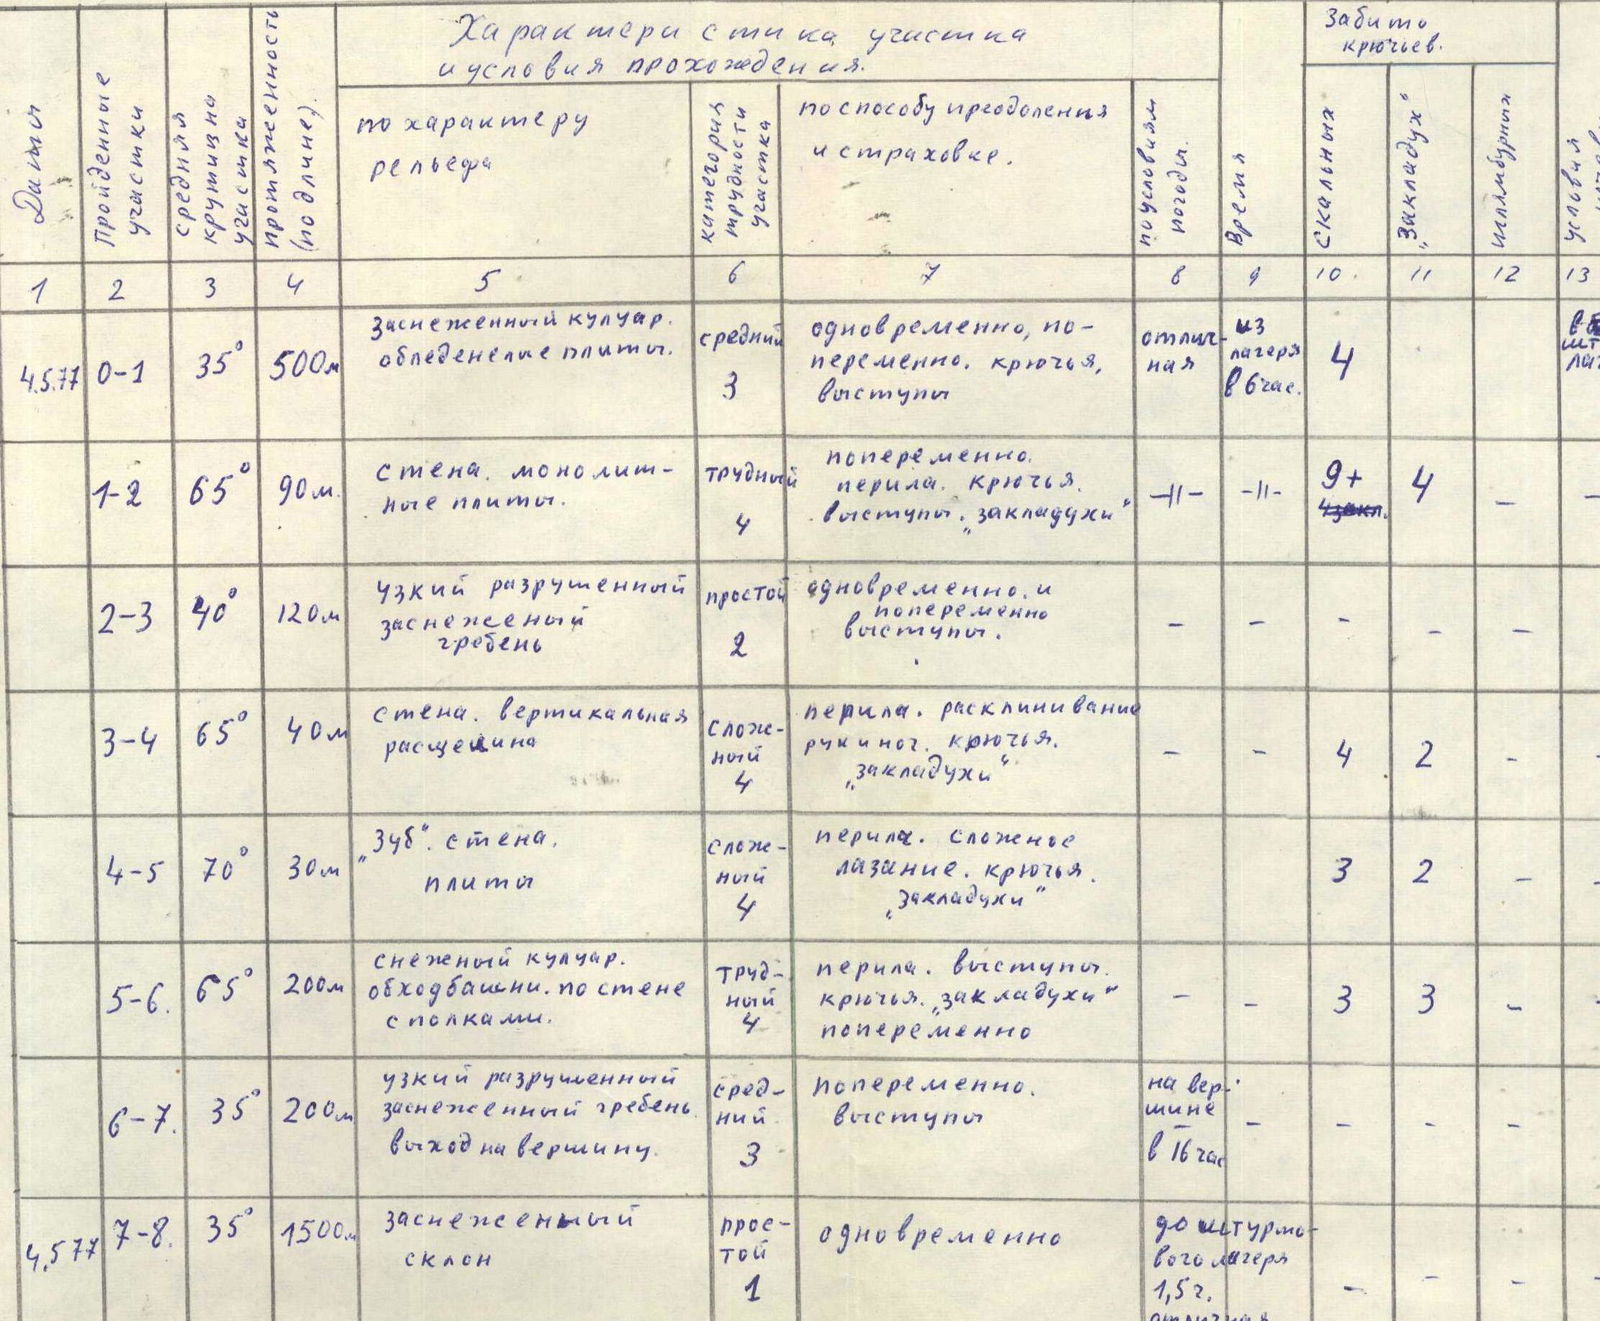 Характеристика участка
и условия прохождения.
Забито
крючьев.
Даты
Пройденные
участки
средняя
крутизна
участка
протяженность
(по длине).
по характеру
рельефа
категория
трудности
участка
по способу преодоления
и страховке.
по условиям
погоды.
Время
Скальных
„Закладух“
шлямбурных
условия
1 2 3 4 5 6 7 8 9 10. 11 12 13
4.5.77 0-1 35° 500м
заснеженный кулуар.
обледенелые плиты.
средний
3
одновременно, по-
переменно. крючья,
выступы
отлич-
ная
из
лагеря
в 6 час.
4
1-2 65° 90м.
стена. монолит-
ные плиты.
трудный
4
попеременно.
перила. крючья.
выступы. „закладухи“
-॥- -॥- 9+ 4 -
4 закл.
2-3 40° 120м
узкий разрушенный
заснеженый
гребень
простой
2
одновременно. и
попеременно
выступы.
- - - - -
3-4 65° 40м
стена. вертикальная
расщелина
слож-
ный
4
перила. расклинивание
рук и ног. крючья.
„закладухи“
- - 4 2 -
4-5 70° 30м
„Зуб“. стена.
плиты
слож-
ный
4
перила. сложное
лазание. крючья.
„закладухи“
3 2 -
5-6. 65° 200м
снежный кулуар.
обход башни. по стене
с полками.
труд-
ный
4
перила. выступы.
крючья. „закладухи“
попеременно
- - 3 3 -
6-7. 35° 200м
узкий разрушенный
заснеженный гребень.
выход на вершину.
сред-
ний.
3
попеременно.
выступы
на вер-
шине
в 16 час
- - - -
4.5.77 7-8. 35° 1500м
заснеженный
склон
прос-
той
1
одновременно
до штурмо-
вого лагеря
1,5 ч.
отличная
- - -